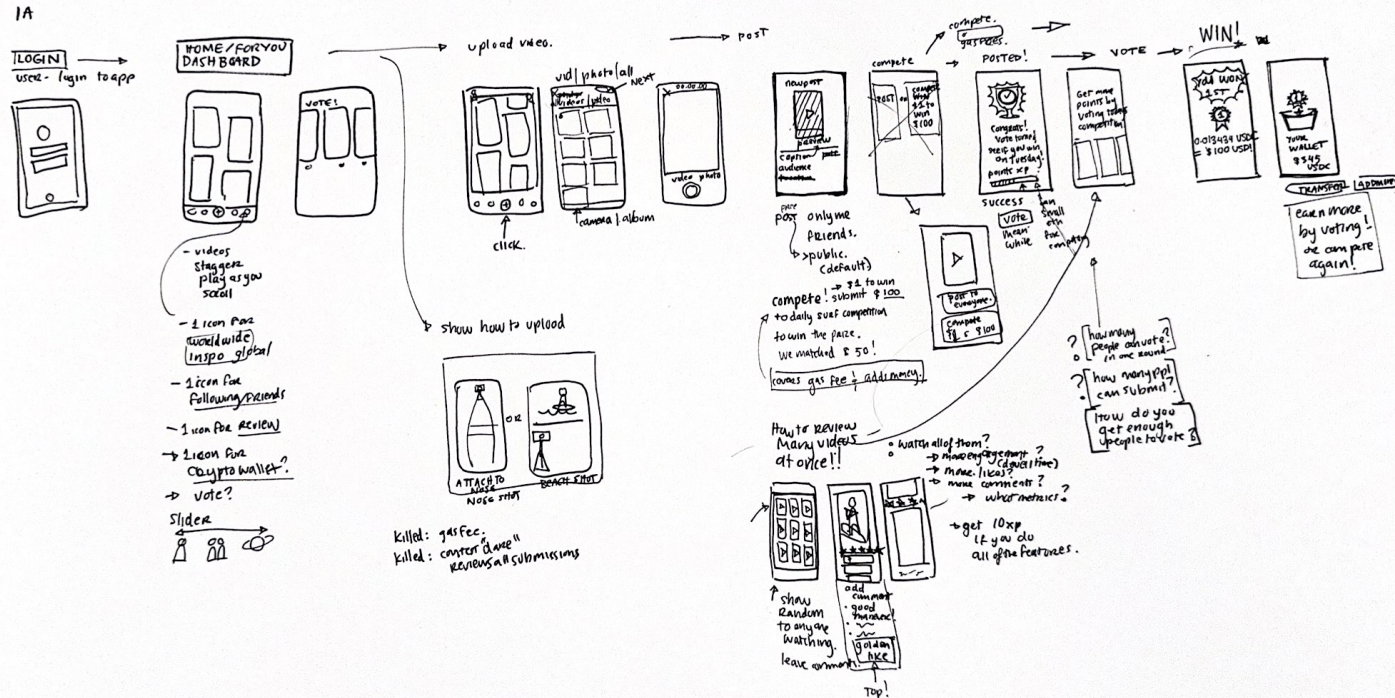 IA
LOGIN
user - login to app
HOME/FORYOU
DASHBOARD
VOTE!
- videos
stagger
play as you
scroll
- 1 icon for
worldwide
inspo global
- 1 icon for
following/friends
- 1 icon for review
→ 1 icon for
crypto wallet?
→ vote?
Slider
upload video.
vid/photo/all
NEXT
videos
camera/album
click.
video photo
00:00:00
show how to upload
OR
ATTACH TO
NOSE
NOSE SHOT
BEACH SHOT
Killed: gas fee.
Killed: contest "dave"
reviews all submissions
POST
new post
preview
caption
audience
post
free
post
only me
friends.
public.
(default)
compete!
→ $1 to win
submit $100
to daily surf competition
to win the prize.
We matched $50!
covers gas fee! adds money.
compete
POST
or
$1 to
win
$100
compete.
gas fees.
post to
everyone.
compete
$100
POSTED!
Congrats!
Vote to
see if you win
on Tuesday!
points xp
SUCCESS
vote
mean
while
small
eth
for
competing
VOTE
Get more
points by
voting
competition!
WIN!
YOU WON
1ST
1
0.013434 USDC
= $100 USD!
YOUR
WALLET
$345
USDC
TRANSFER
earn more
by voting!
or compete
again!
? how many
people can vote?
in one round
? how many ppl
can submit?
How do you
get enough
people to vote?
How to review
many videos
at once!!
• watch all of them?
→ more engagement?
(dwell time)
→ more likes?
→ more comments?
→ what metrics?
→ get 10xp
if you do
all of the features.
show
random
to anyone
watching.
leave comments.
add
comment
• good
golden
like
TOP!